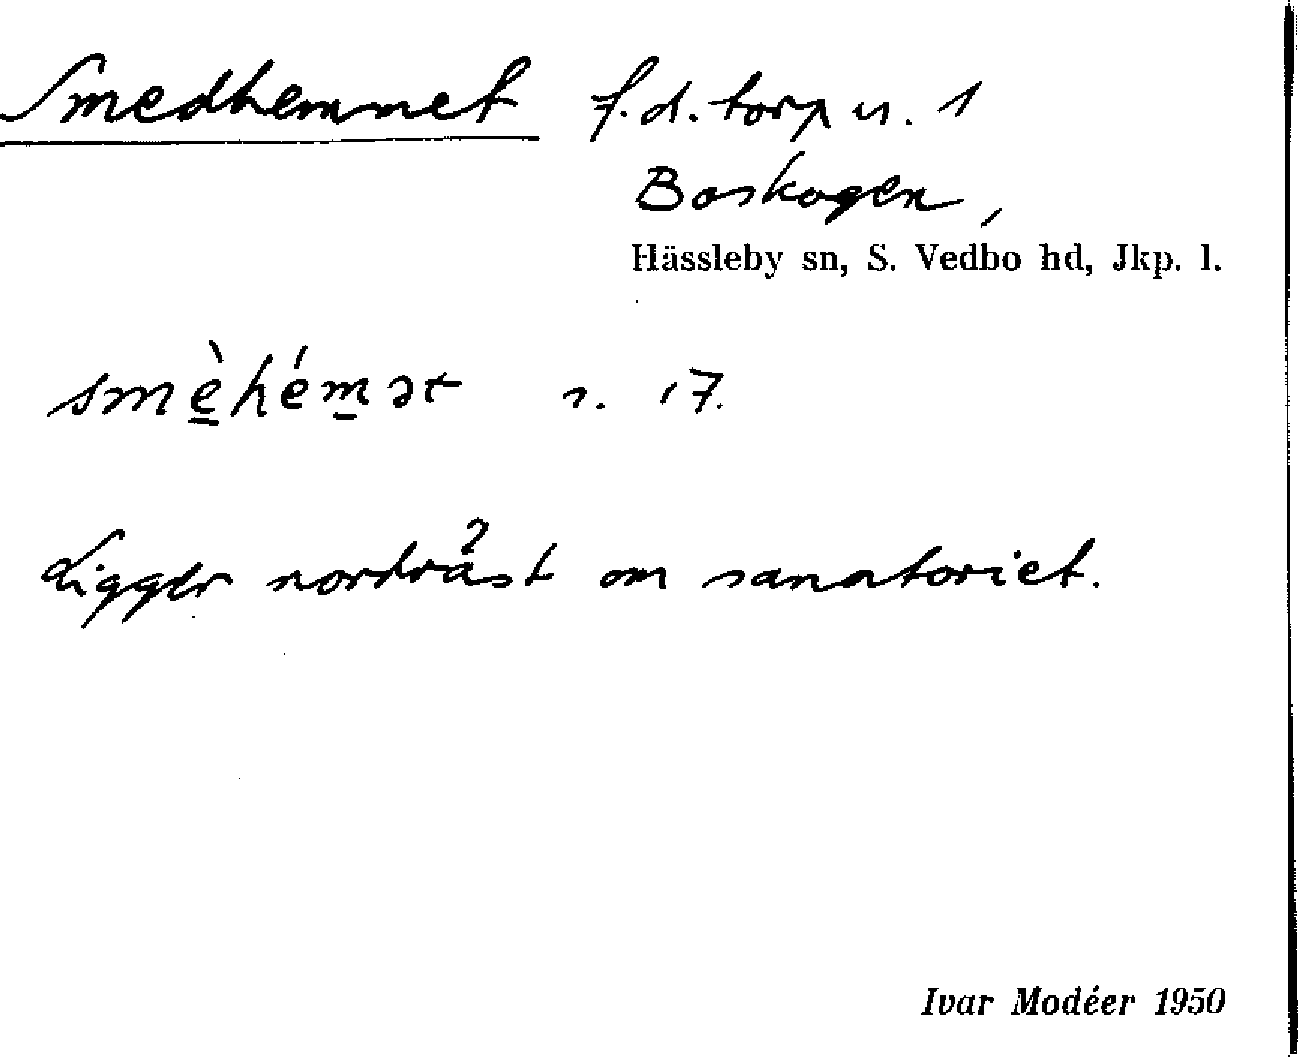 Smedhemmet f.d. torp u. 1
Boskogen,
Hässleby sn, S. Vedbo hd, Jkp. l.
smè̲hém̲ət n. 17.
Ligger nordväst om sanatoriet.
Ivar Modéer 1950